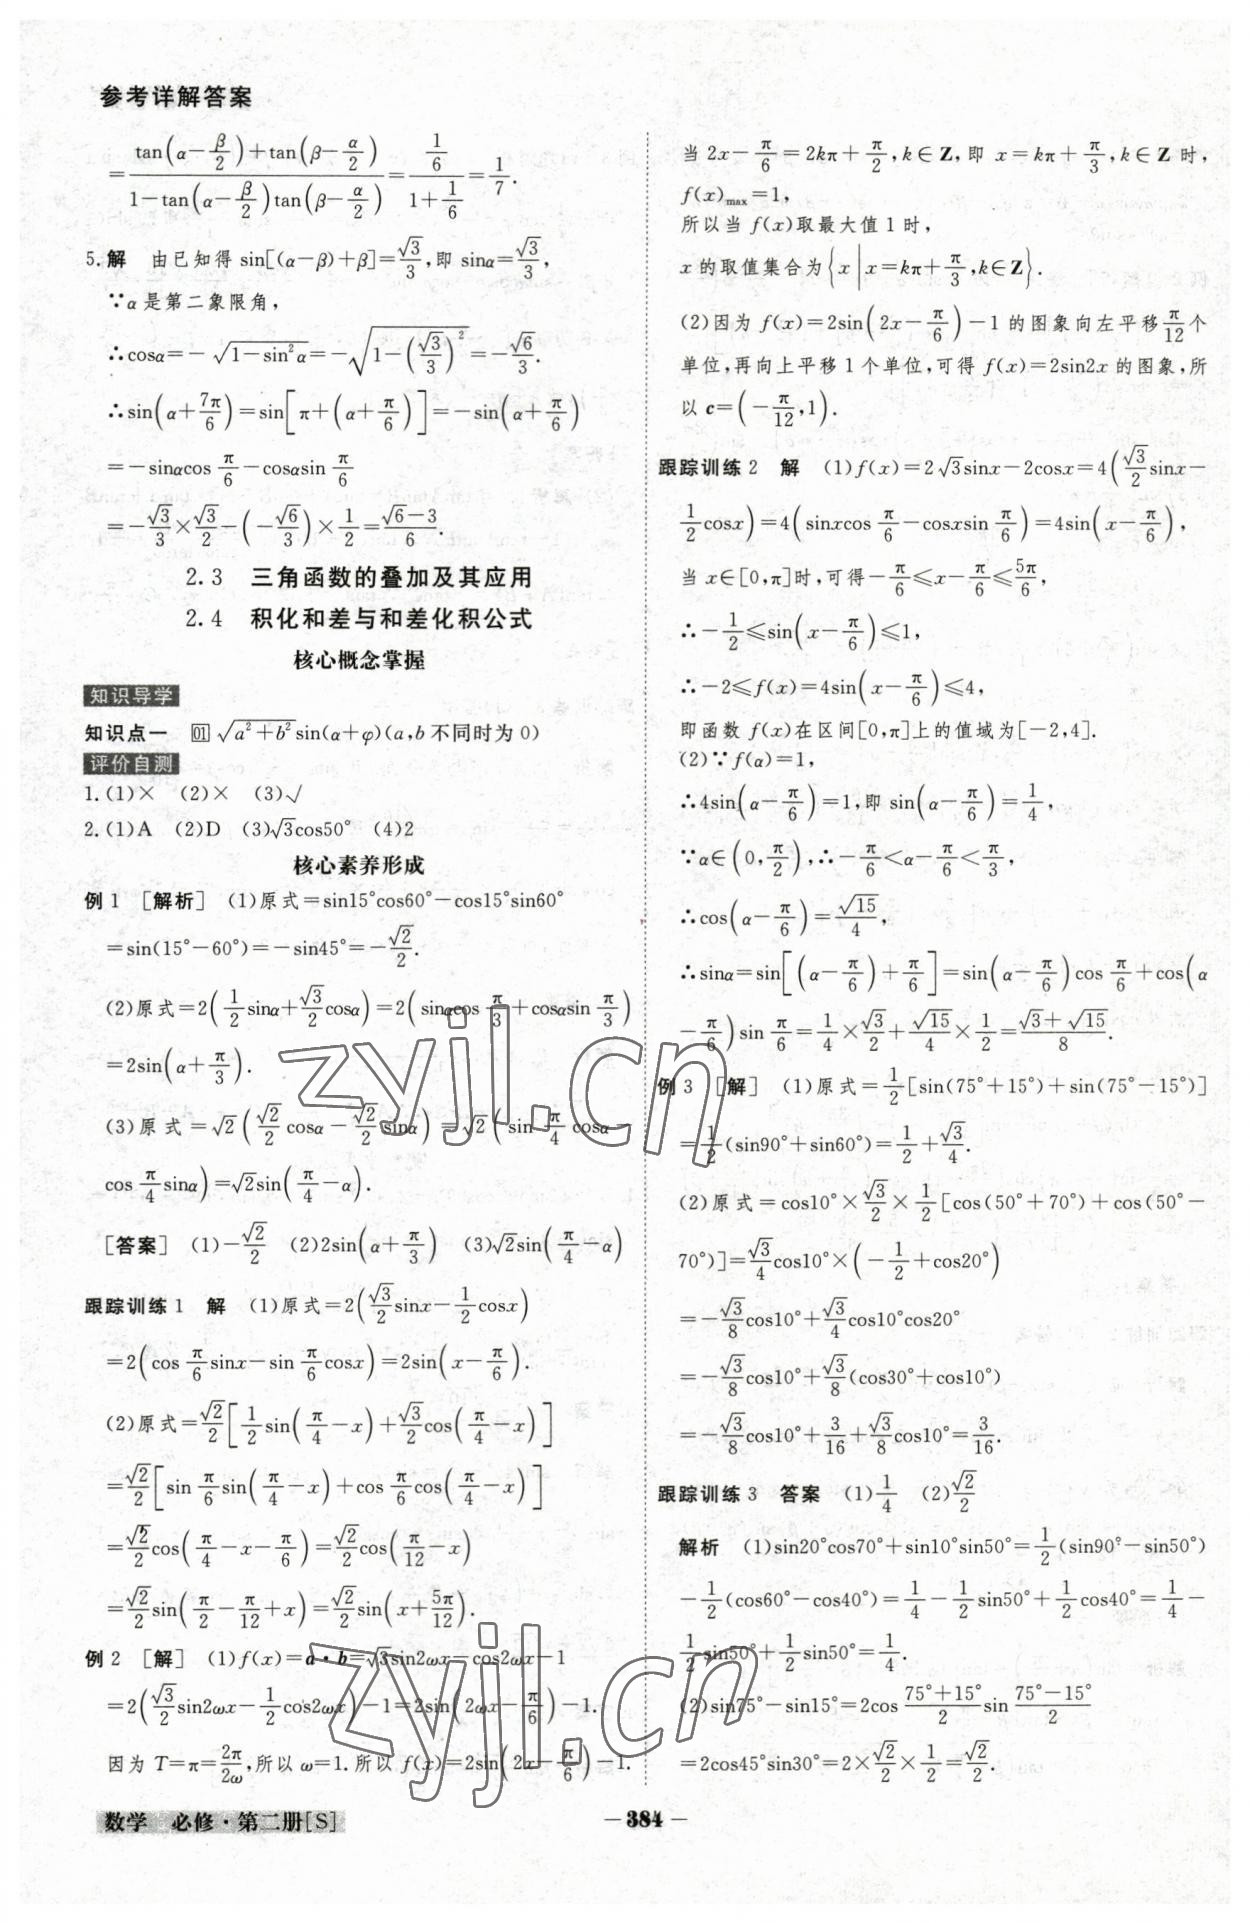 参考详解答案
=\frac{tan(α-\frac{β}{2})+tan(β-\frac{α}{2})}{1-tan(α-\frac{β}{2})tan(β-\frac{α}{2})}=\frac{\frac{1}{6}}{1+\frac{1}{6}}=\frac{1}{7}.
5.解 由已知得 sin[(α-β)+β]=\frac{√3}{3},即 sinα=\frac{√3}{3},
∵α是第二象限角,
∴cosα=-√(1-sin²α)=-√(1-(\frac{√3}{3})²)=-\frac{√6}{3}.
∴sin(α+\frac{7π}{6})=sin[π+(α+\frac{π}{6})]=-sin(α+\frac{π}{6})
=-sinαcos\frac{π}{6}-cosαsin\frac{π}{6}
=-\frac{√3}{3}×\frac{√3}{2}-(-\frac{√6}{3})×\frac{1}{2}=\frac{√6-3}{6}.
2.3 三角函数的叠加及其应用
2.4 积化和差与和差化积公式
核心概念掌握
知识导学
知识点一 01 √(a²+b²)sin(α+φ)(a,b不同时为0)
评价自测
1.(1)× (2)× (3)√
2.(1)A (2)D (3)√3cos50° (4)2
核心素养形成
例1 [解析] (1)原式=sin15°cos60°-cos15°sin60°
=sin(15°-60°)=-sin45°=-\frac{√2}{2}.
(2)原式=2(\frac{1}{2}sinα+\frac{√3}{2}cosα)=2(sinαcos\frac{π}{3}+cosαsin\frac{π}{3})
=2sin(α+\frac{π}{3}).
(3)原式=√2(\frac{√2}{2}cosα-\frac{√2}{2}sinα)=√2(sin\frac{π}{4}cosα-
cos\frac{π}{4}sinα)=√2sin(\frac{π}{4}-α).
[答案] (1)-\frac{√2}{2} (2)2sin(α+\frac{π}{3}) (3)√2sin(\frac{π}{4}-α)
跟踪训练1 解 (1)原式=2(\frac{√3}{2}sinx-\frac{1}{2}cosx)
=2(cos\frac{π}{6}sinx-sin\frac{π}{6}cosx)=2sin(x-\frac{π}{6}).
(2)原式=\frac{√2}{2}[\frac{1}{2}sin(\frac{π}{4}-x)+\frac{√3}{2}cos(\frac{π}{4}-x)]
=\frac{√2}{2}[sin\frac{π}{6}sin(\frac{π}{4}-x)+cos\frac{π}{6}cos(\frac{π}{4}-x)]
=\frac{√2}{2}cos(\frac{π}{4}-x-\frac{π}{6})=\frac{√2}{2}cos(\frac{π}{12}-x)
=\frac{√2}{2}sin(\frac{π}{2}-\frac{π}{12}+x)=\frac{√2}{2}sin(x+\frac{5π}{12}).
例2 [解] (1)f(x)=a·b=√3sin2ωx-cos2ωx-1
=2(\frac{√3}{2}sin2ωx-\frac{1}{2}cos2ωx)-1=2sin(2ωx-\frac{π}{6})-1.
因为 T=π=\frac{2π}{2ω},所以 ω=1.所以 f(x)=2sin(2x-\frac{π}{6})-1.
当 2x-\frac{π}{6}=2kπ+\frac{π}{2},k∈Z,即 x=kπ+\frac{π}{3},k∈Z 时,
f(x)max=1,
所以当 f(x)取最大值1时,
x的取值集合为{x|x=kπ+\frac{π}{3},k∈Z}.
(2)因为 f(x)=2sin(2x-\frac{π}{6})-1的图象向左平移\frac{π}{12}个
单位,再向上平移1个单位,可得 f(x)=2sin2x的图象,所
以 c=(-\frac{π}{12},1).
跟踪训练2 解 (1)f(x)=2√3sinx-2cosx=4(\frac{√3}{2}sinx-
\frac{1}{2}cosx)=4(sinxcos\frac{π}{6}-cosxsin\frac{π}{6})=4sin(x-\frac{π}{6}),
当 x∈[0,π]时,可得-\frac{π}{6}≤x-\frac{π}{6}≤\frac{5π}{6},
∴-\frac{1}{2}≤sin(x-\frac{π}{6})≤1,
∴-2≤f(x)=4sin(x-\frac{π}{6})≤4,
即函数 f(x)在区间[0,π]上的值域为[-2,4].
(2)∵f(α)=1,
∴4sin(α-\frac{π}{6})=1,即 sin(α-\frac{π}{6})=\frac{1}{4},
∵α∈(0,\frac{π}{2}),∴-\frac{π}{6}<α-\frac{π}{6}<\frac{π}{3},
∴cos(α-\frac{π}{6})=\frac{√15}{4},
∴sinα=sin[(α-\frac{π}{6})+\frac{π}{6}]=sin(α-\frac{π}{6})cos\frac{π}{6}+cos(α
-\frac{π}{6})sin\frac{π}{6}=\frac{1}{4}×\frac{√3}{2}+\frac{√15}{4}×\frac{1}{2}=\frac{√3+√15}{8}.
例3 [解] (1)原式=\frac{1}{2}[sin(75°+15°)+sin(75°-15°)]
=\frac{1}{2}(sin90°+sin60°)=\frac{1}{2}+\frac{√3}{4}.
(2)原式=cos10°×\frac{√3}{2}×\frac{1}{2}[cos(50°+70°)+cos(50°-
70°)]=\frac{√3}{4}cos10°×(-\frac{1}{2}+cos20°)
=-\frac{√3}{8}cos10°+\frac{√3}{4}cos10°cos20°
=-\frac{√3}{8}cos10°+\frac{√3}{8}(cos30°+cos10°)
=-\frac{√3}{8}cos10°+\frac{3}{16}+\frac{√3}{8}cos10°=\frac{3}{16}.
跟踪训练3 答案 (1)\frac{1}{4} (2)\frac{√2}{2}
解析 (1)sin20°cos70°+sin10°sin50°=\frac{1}{2}(sin90°-sin50°)
-\frac{1}{2}(cos60°-cos40°)=\frac{1}{4}-\frac{1}{2}sin50°+\frac{1}{2}cos40°=\frac{1}{4}-
\frac{1}{2}sin50°+\frac{1}{2}sin50°=\frac{1}{4}.
(2)sin75°-sin15°=2cos\frac{75°+15°}{2}sin\frac{75°-15°}{2}
=2cos45°sin30°=2×\frac{√2}{2}×\frac{1}{2}=\frac{√2}{2}.
zyjl.cn
zyjl.cn
数学 必修·第二册[S]
-384-